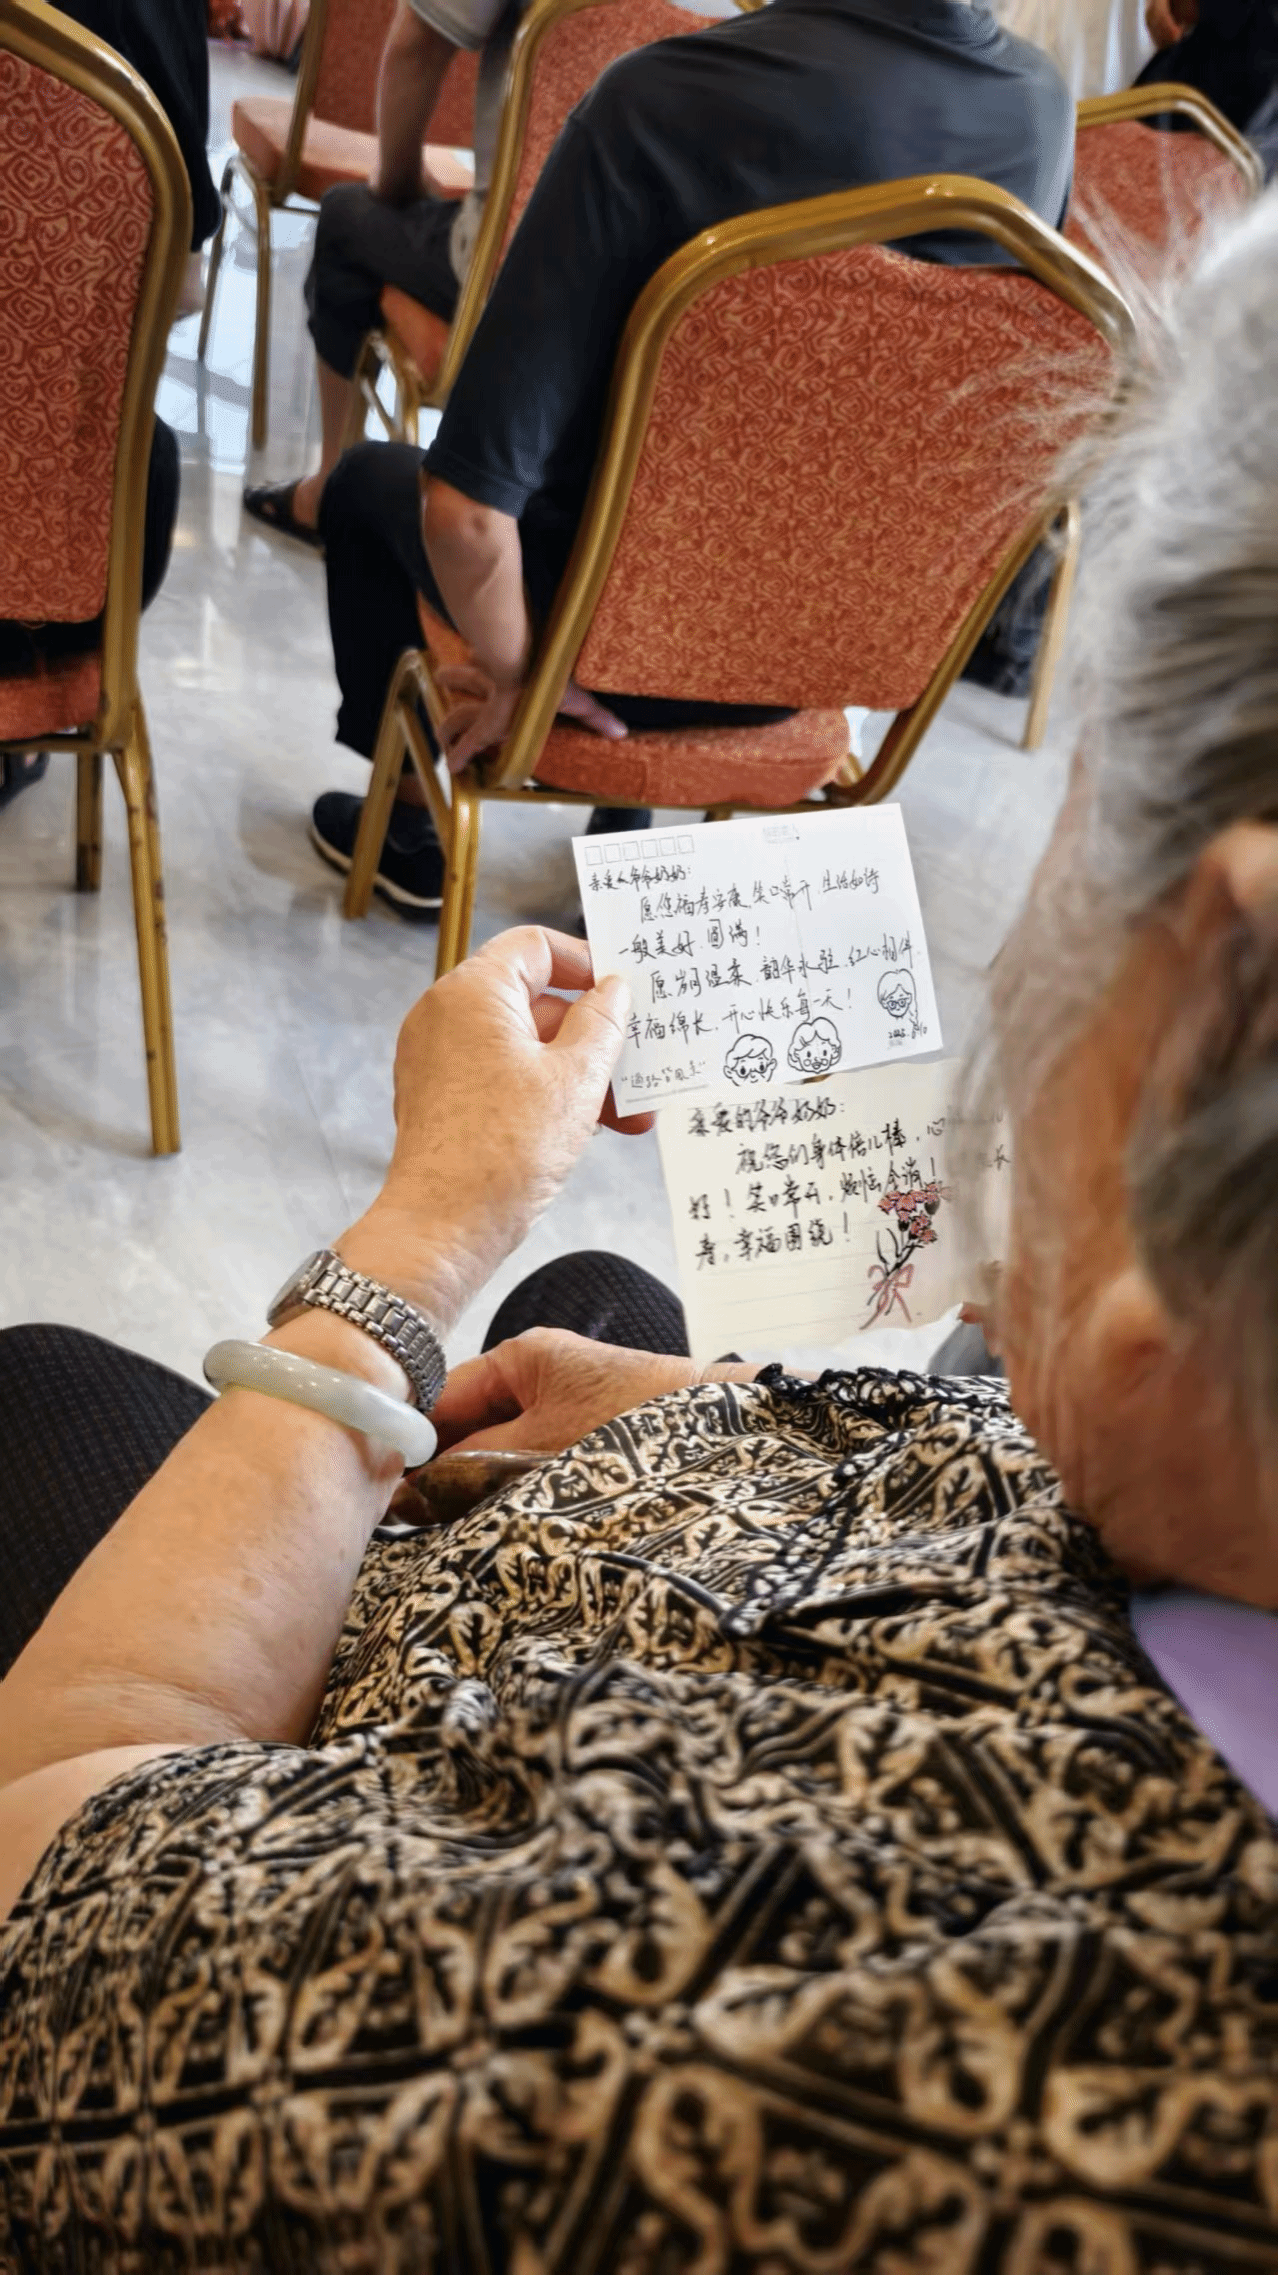 亲爱的爷爷奶奶：
愿您福寿安康，笑口常开，生活如诗
一般美好，圆满！
愿岁月温柔，韶华永驻，红心相伴
幸福绵长，开心快乐每一天！
"过路皆风景"
2025
亲爱的爷爷奶奶：
祝您们身体倍儿棒，心
好！笑口常开，烦恼全消！
寿，幸福围绕！